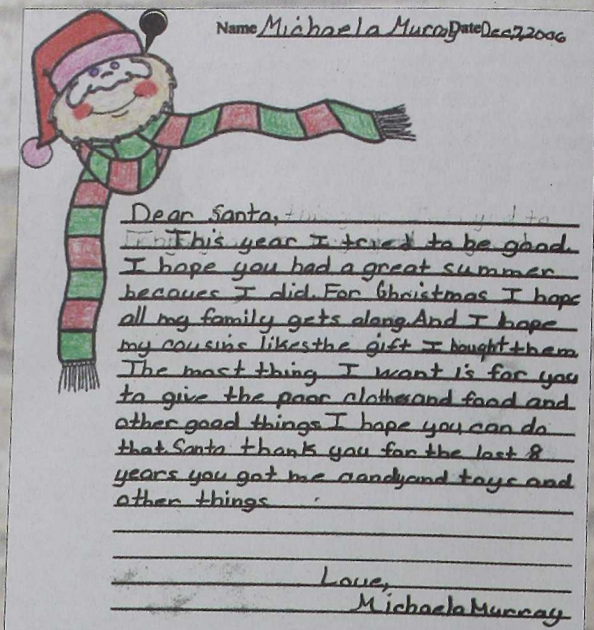 Name Michaela Murray Date Dec 7, 2006
Dear Santa,
This year I tried to be good.
I hope you had a great summer
becaues I did. For Christmas I hope
all my family gets along. And I hope
my cousins likes the gift I bought them
The most thing I want is for you
to give the poor clothes and food and
other good things I hope you can do
that. Santa thank you for the last 8
years you got me candy and toys and
other things
Love,
Michaela Murray